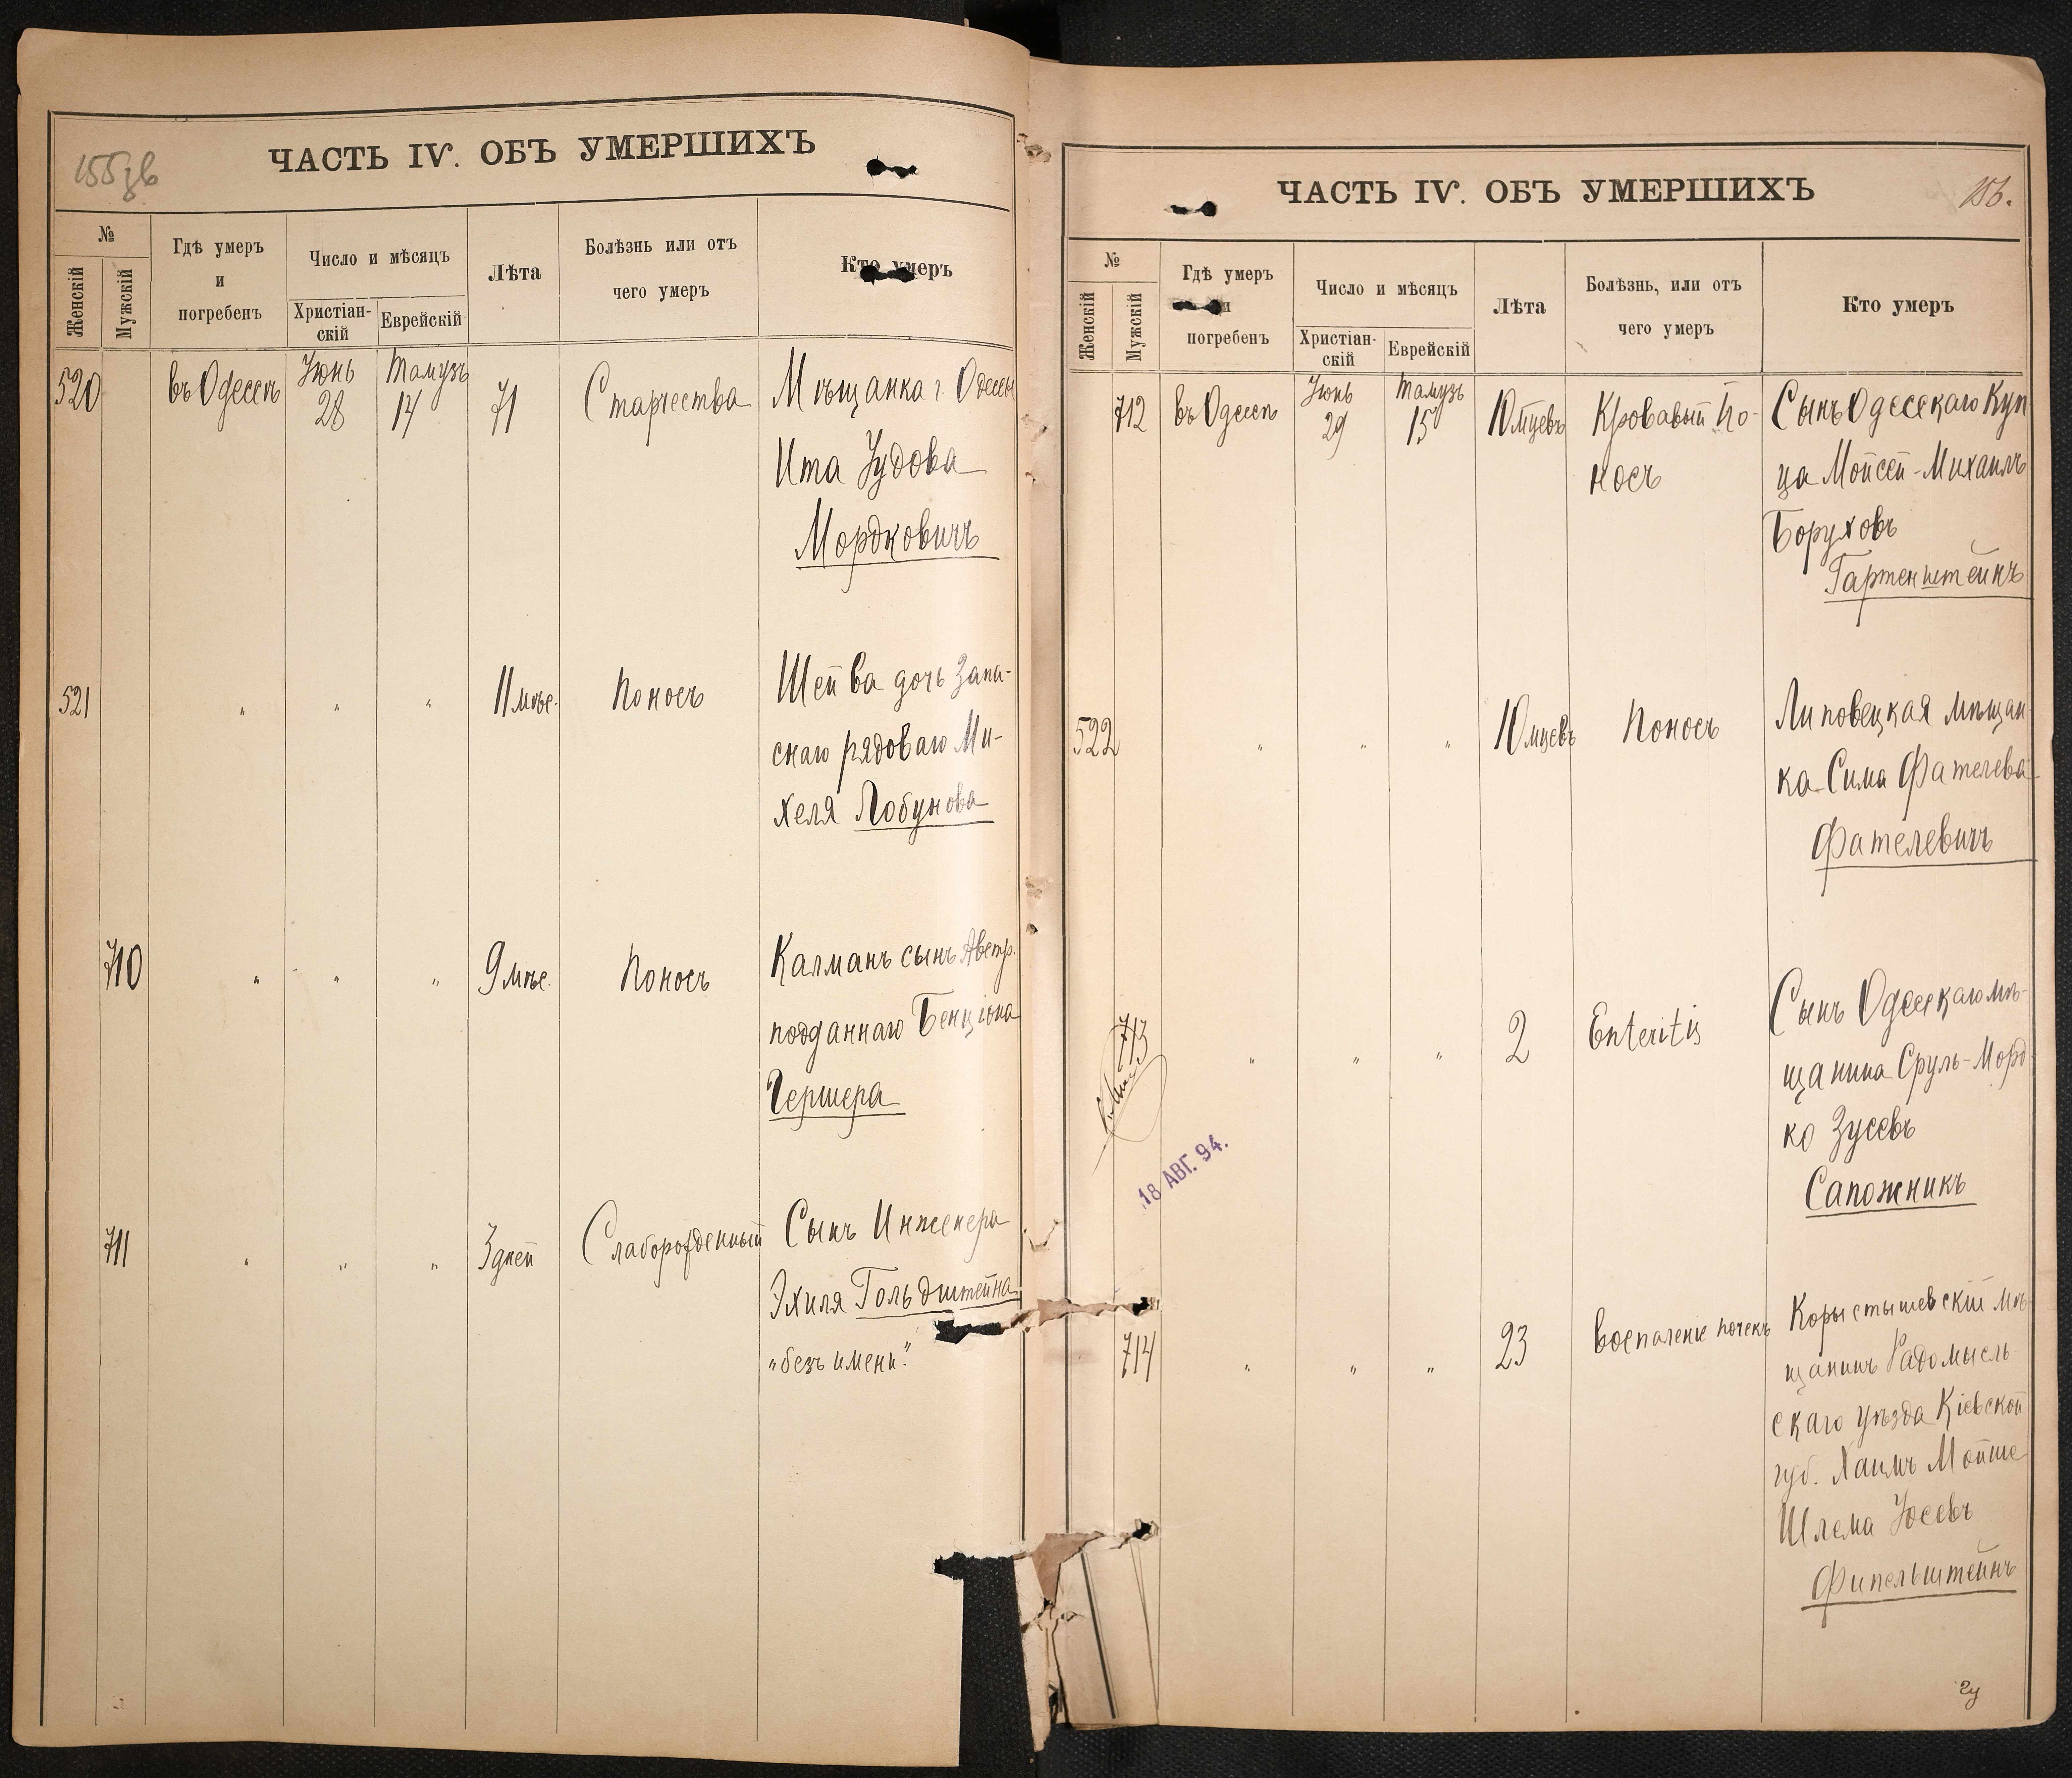 155 зв
ЧАСТЬ IV. ОБЪ УМЕРШИХЪ
№
Женскій
Мужскій
Гдѣ умеръ
и
погребенъ
Число и мѣсяцъ
Христіан-
скій
Еврейскій
Лѣта
Болѣзнь или отъ
чего умеръ
Кто умеръ
520 въ Одессѣ Іюнь 28 Тамузъ 14 71 Старчества Мѣщанка г. Одессы
Ита Іудова
Мордковичъ
521 " " " 11 мѣс. Поносъ Шейва дочь Запа-
снаго рядоваго Ми-
хеля Лобунова
710 " " " 9 мѣс. Поносъ Калманъ сынъ Австр.
подданнаго Бенціона
Гершера
711 " " " 3 дней Слаборожденный Сынъ Инженера
Эхиля Гольдштейна
"безъ имени".
ЧАСТЬ IV. ОБЪ УМЕРШИХЪ
156.
№
Женскій
Мужскій
Гдѣ умеръ
и
погребенъ
Число и мѣсяцъ
Христіан-
скій
Еврейскій
Лѣта
Болѣзнь, или отъ
чего умеръ
Кто умеръ
712 въ Одессѣ Іюнь 29 Тамузъ 15 10 мцевъ Кровавый по- Сынъ Одесскаго Куп
носъ ца Мойсей-Михаилъ
Боруховъ
Гартенштейнъ
522 " " " 10 мцевъ Поносъ Липовецкая мѣщан-
ка Сима Фателева
Фателевичъ
713 " " " 2 Enteritis Сынъ Одесскаго мѣ-
щанина Сруль-Морд-
ко Зусевъ
Сапожникъ
18 АВГ. 94.
714 " " " 23 Воспаленіе почекъ Корыстышевскій мѣ-
щанинъ Радомысль-
скаго уѣзда Кіевской
губ. Хаимъ Мойше
Шлема Іосевъ
Фипельштейнъ